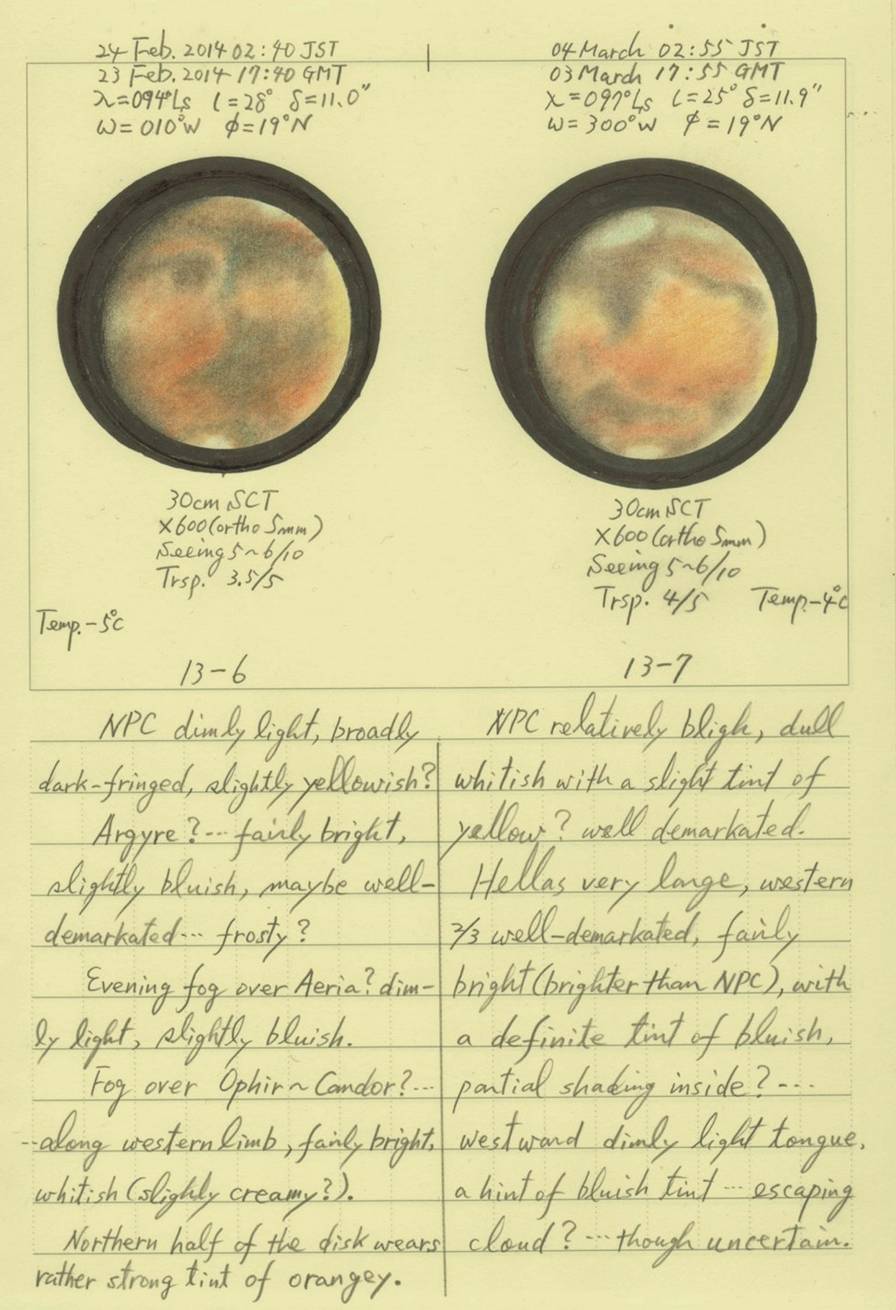 24 Feb. 2014 02:40 JST
23 Feb. 2014 17:40 GMT
λ=094°Ls ι=28° δ=11.0"
ω=010°W φ=19°N
30cm SCT
×600(ortho 5mm)
Seeing 5~6/10
Trsp. 3.5/5
Temp.-5°C
13-6
04 March 02:55 JST
03 March 17:55 GMT
λ=097°Ls ι=25° δ=11.9"
ω=300°W φ=19°N
30cm SCT
×600(ortho 5mm)
Seeing 5~6/10
Trsp. 4/5 Temp-4°C
13-7
NPC dimly light, broadly
dark-fringed, slightly yellowish?
Argyre?--- fairly bright,
slightly bluish, maybe well-
demarkated--- frosty?
Evening fog over Aeria? dim-
ly light, slightly bluish.
Fog over Ophir~Candor?---
--along western limb, fairly bright,
whitish (slighly creamy?).
Northern half of the disk wears
rather strong tint of orangey.
NPC relatively bligh, dull
whitish with a slight tint of
yellow? well demarkated.
Hellas very large, western
2/3 well-demarkated, fairly
bright(brighter than NPC), with
a definite tint of bluish,
partial shading inside?---
westward dimly light tongue,
a hint of bluish tint --- escaping
cloud? ---though uncertain.